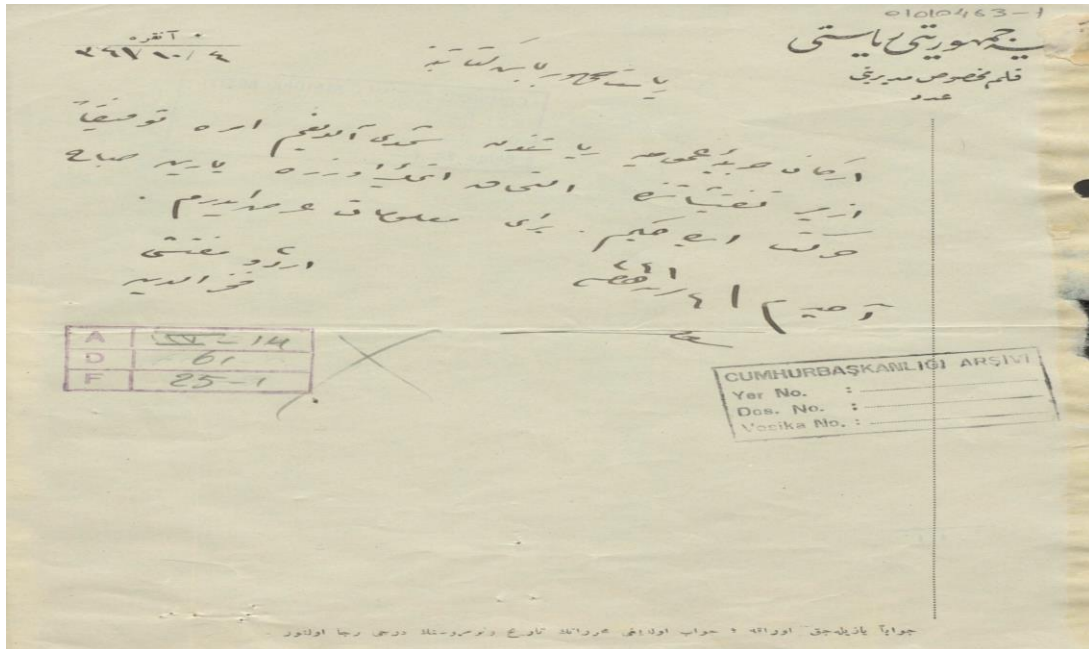 01010463-1
جمهوريتى رياستى
قلم مخصوص مديريتى
عدد
آنقره
٤/١٠/٣٤١
رياست جمهور باش كتابتنه
اركان حربيۀ عموميه رياستندن شمدى آلديغم امره توفيقاً
ازمير تفتيشاتنه التحاق ايتمك اوزره يارين صباح
حركت ايده جكم. براى معلومات عرض ايدرم.
اردو مفتشى
فخرالدين
A | -14
D | 61
F | 25-1
CUMHURBAŞKANLIĞI ARŞİVİ
Yer No. :
Dos. No. :
Vesika No. :
جواباً يازيله جق اوراقده جواب اولديغى محرراتك تاريخ ونومروسنك درجى رجا اولنور